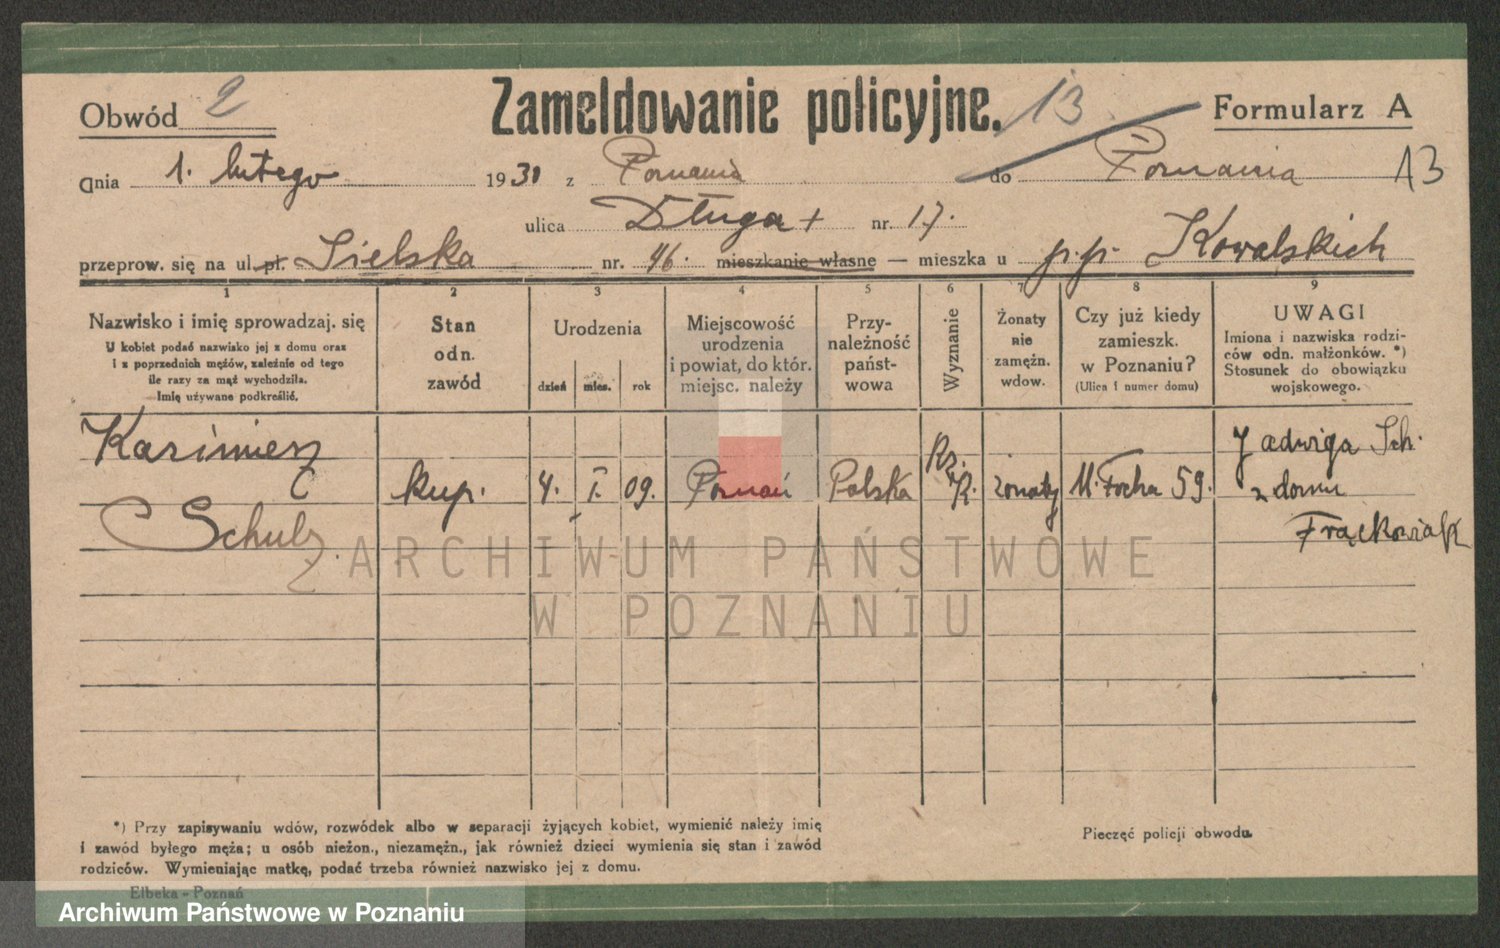 Obwód 2
Zameldowanie policyjne.
13
Formularz A
dnia 1. lutego 1931 z Poznania do Poznania 13
ulica Długa + nr. 17.
przeprow. się na ul. pl. Sielska nr. 46. mieszkanie własne — mieszka u p.p. Kowalskich
1 2 3 4 5 6 7 8 9
Nazwisko i imię sprowadzaj. się
U kobiet podać nazwisko jej z domu oraz
i z poprzednich mężów, zależnie od tego
ile razy za mąż wychodziła.
Imię używane podkreślić.
Stan
odn.
zawód
Urodzenia
dzień mies. rok
Miejscowość
urodzenia
i powiat, do któr.
miejsc. należy
Przy-
należność
państ-
wowa
Wyznanie
Żonaty
nie
zamężn.
wdow.
Czy już kiedy
zamieszk.
w Poznaniu?
(Ulica i numer domu)
UWAGI
Imiona i nazwiska rodzi-
ców odn. małżonków. *)
Stosunek do obowiązku
wojskowego.
Kazimierz
Schulz.
kup.
4. I. 09.
Poznań
Polska
Rz. K.
żonaty
M. Focha 59.
Jadwiga Sch.
z domu
Frąckowiak
ARCHIWUM PAŃSTWOWE
W POZNANIU
*) Przy zapisywaniu wdów, rozwódek albo w separacji żyjących kobiet, wymienić należy imię
i zawód byłego męża; u osób nieżon., niezamężn., jak również dzieci wymienia się stan i zawód
rodziców. Wymieniając matkę, podać trzeba również nazwisko jej z domu.
Pieczęć policji obwodu
Elbeka - Poznań
Archiwum Państwowe w Poznaniu